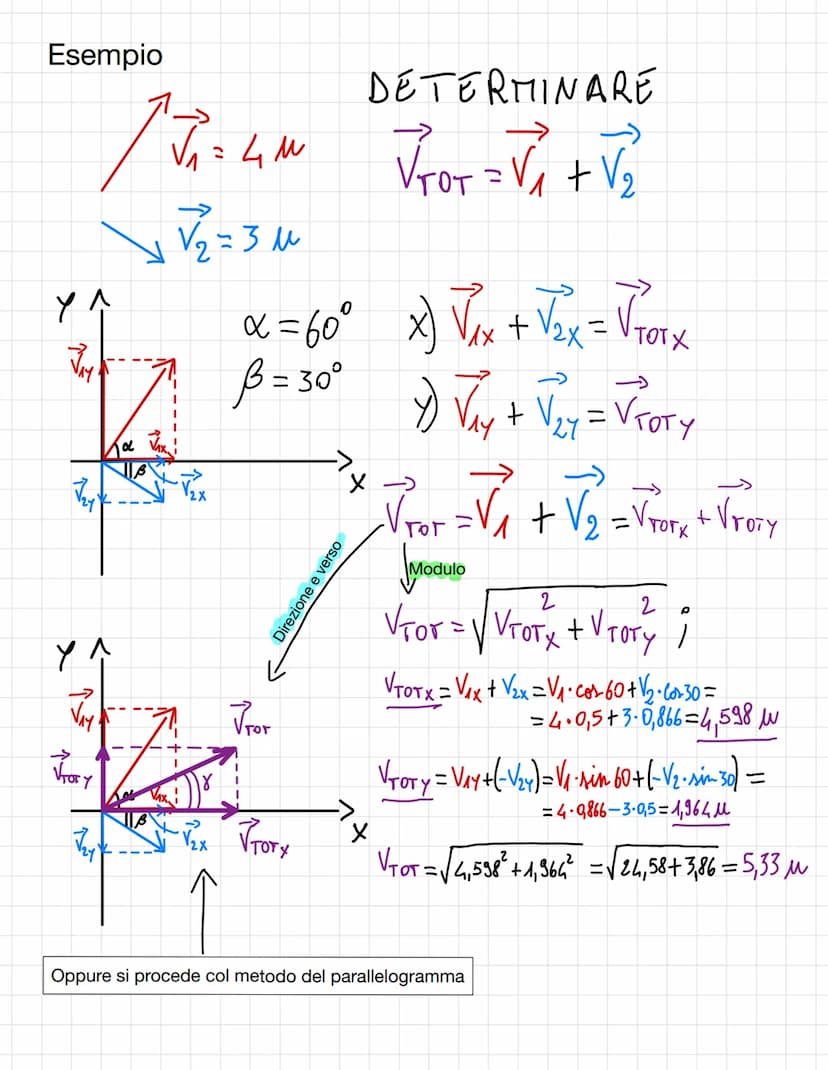 Esempio
DETERMINARE
V₁ = 4 u
V_TOT = V₁ + V₂
V₂ = 3 u
Y
α = 60°
β = 30°
x) V₁ₓ + V₂ₓ = V_TOTX
y) V₁y + V₂y = V_TOTY
V₁y
α
V₁ₓ
β
V₂y
V₂ₓ
X
V_TOT = V₁ + V₂ = V_TOTX + V_TOTY
Direzione e verso
Modulo
V_TOT = √(V_TOTX² + V_TOTY²) ;
V_TOTX = V₁ₓ + V₂ₓ = V₁·cos 60 + V₂·cos 30 =
= 4·0,5 + 3·0,866 = 4,598 u
V_TOTY = V₁y + (-V₂y) = V₁·sin 60 + (-V₂·sin 30) =
= 4·0,866 - 3·0,5 = 1,964 u
V_TOT = √(4,598² + 1,964²) = √(21,58 + 3,86) = 5,33 u
Y
V₁y
V_TOT
V_TOTY
γ
α
V₁ₓ
β
X
V₂y
V₂ₓ
V_TOTX
Oppure si procede col metodo del parallelogramma